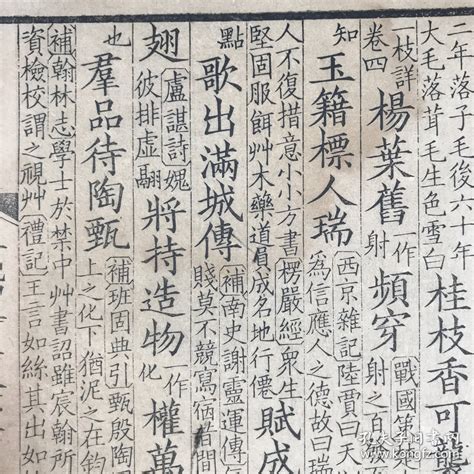 二年落子毛後六十年
大毛落茸毛生色雪白
桂枝香可
一枝詳
卷四
楊葉舊
一作
射
頻穿
戰國策
射之百
知
玉籍標人瑞
西京雜記陸賈曰天
爲信應人之德故曰瑞
人不復措意小小方書楞嚴經衆生
堅固服餌艸木藥道圓成名地行僊
賦成
點
歌出滿城傳
補南史謝靈運傳
賤莫不競寫宿昔間
翅
盧諶詩媿
彼排虛翮
將持造物
一作
化
權萬
也
羣品待陶甄
補班固典引甄殷陶
上之化下猶泥之在鈞
補翰林志學士於禁中艸書詔雖宸翰所
資檢校謂之視艸禮記王言如絲其出如